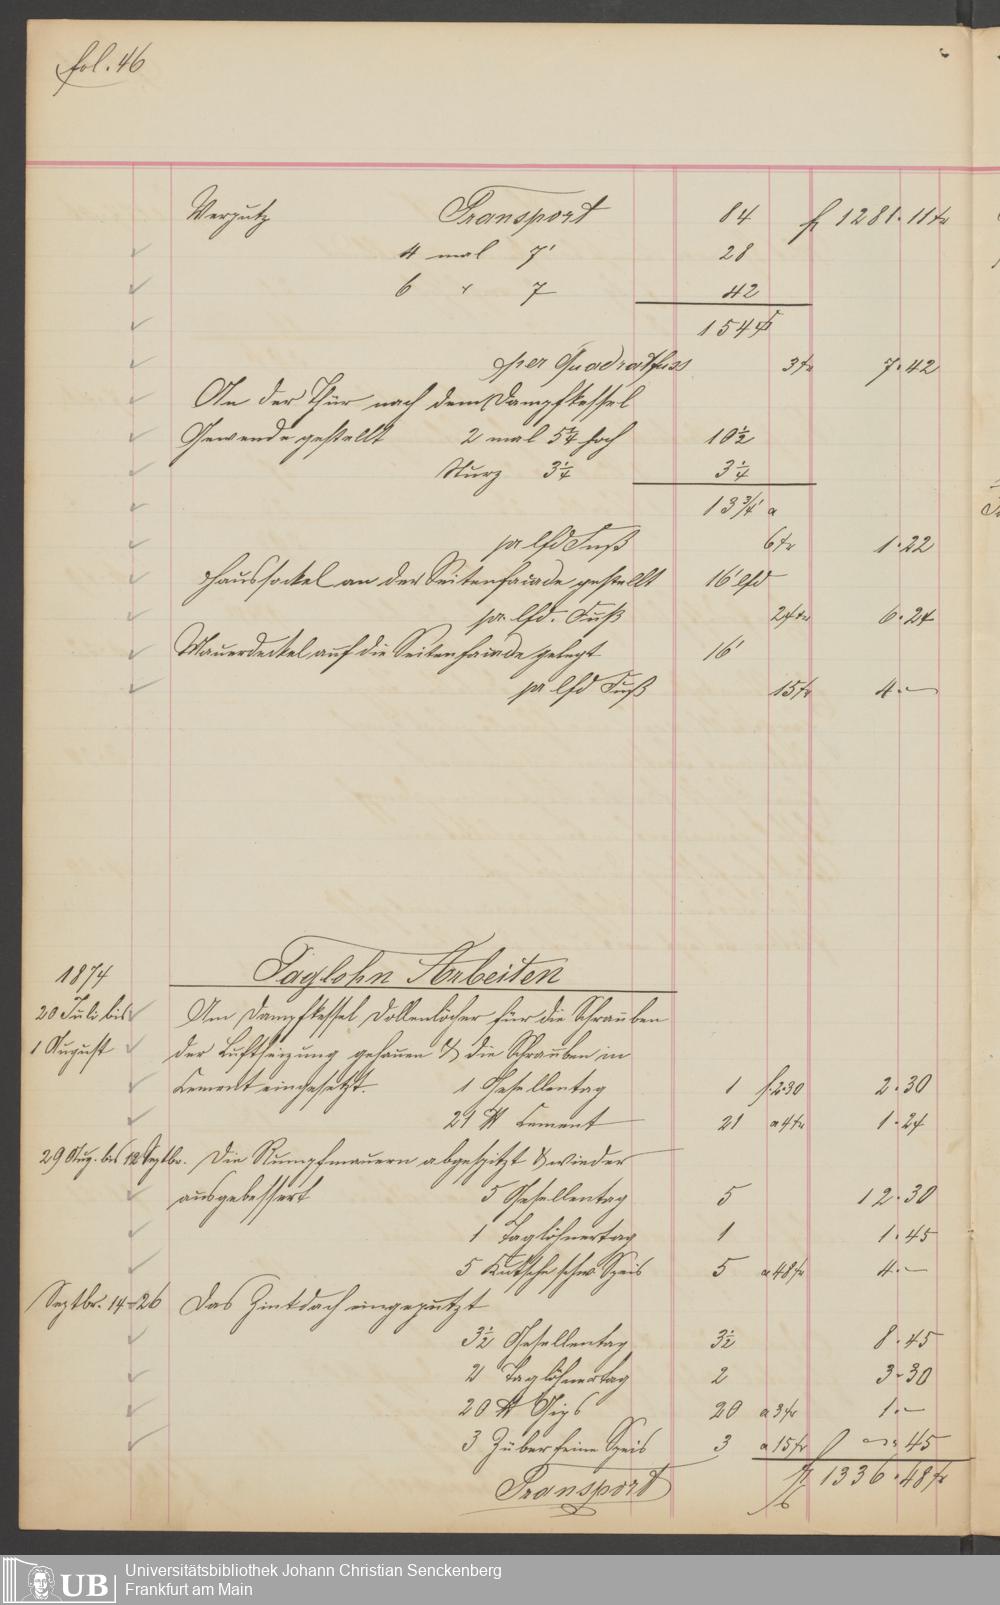 fol. 46
Verputz Transport 84 fl 1281. 11 kr
4 mal 7' 28
6 " 7 42
154 □'
per Quadratfuss 3 kr 7. 42
An der Thür nach dem Dampfkessel
Gewende gestellt 2 mal 5¼ hoch 10½
Sturz 3¼ 3¼
13¾' a
pr lfd Fuß 6 kr 1. 22
Haussockel an der Seitenfacade gestellt 16' lfd
pr lfd. Fuß 24 kr 6. 24
Mauerdeckel auf die Seitenfacade gelegt 16'
pr lfd Fuß 15 kr 4. —
1874 Taglohn Arbeiten
20 Juli bis Am Dampfkessel Dollenlöcher für die Schrauben
1 August der Luftheizung gehauen & die Schrauben in
Cement eingesetzt. 1 Gesellentag 1 f. 2.30 2. 30
21 ℔ Cement 21 a 4 kr 1. 24
29 Aug. bis 12 Septbr. Die Rumpfmauern abgespitzt & wieder
ausgebessert 5 Gesellentag 5 12. 30
1 Taglöhnertag 1 1. 45
5 schw. Speis 5 a 48 kr 4. —
Septbr. 14–26 Das Zinkdach eingeputzt
3½ Gesellentag 3½ 8. 45
2 Taglöhnertag 2 3. 30
20 ℔ Gips 20 a 3 kr 1. —
3 Züber feine Speis 3 a 15 kr —. 45
Transport fl 1336. 48 kr
UB
Universitätsbibliothek Johann Christian Senckenberg
Frankfurt am Main